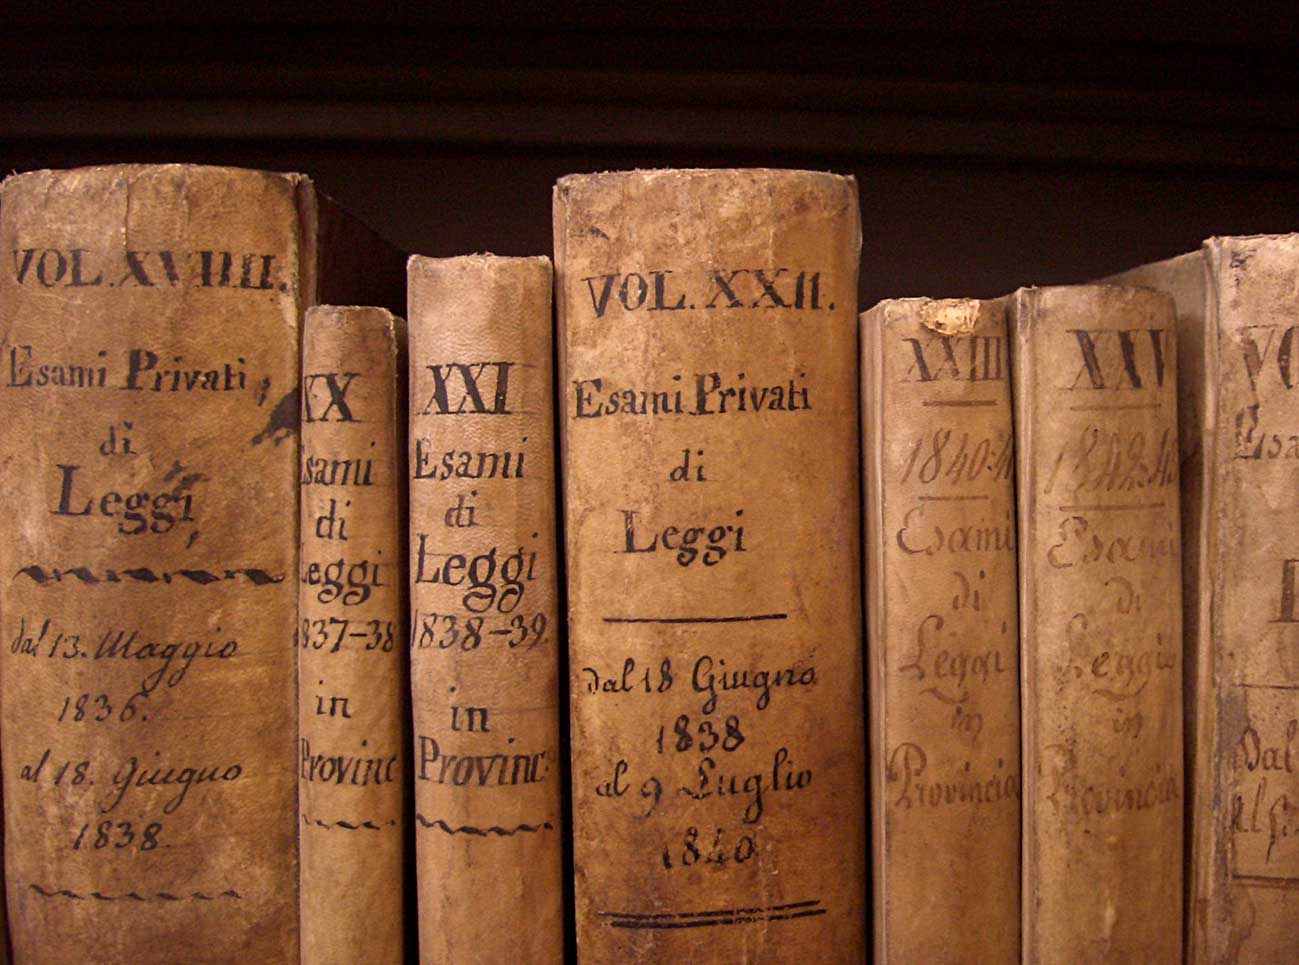 VOL. XVIIII.
Esami Privati,
di
Leggi,
dal 13. Maggio
1836.
al 18. Giugno
1838.
XX
Esami
di
Leggi
1837-38
in
Provinc
XXI
Esami
di
Leggi
1838-39.
in
Provinc:
VOL. XXII.
Esami Privati
di
Leggi
dal 18 Giugno
1838
al 9 Luglio
1840
XXIII
1840:
Esami
di
Leggi
in
Provincia
XXV
Esami
di
Leggi
in
Provincia
VO
Esa
Dal
al